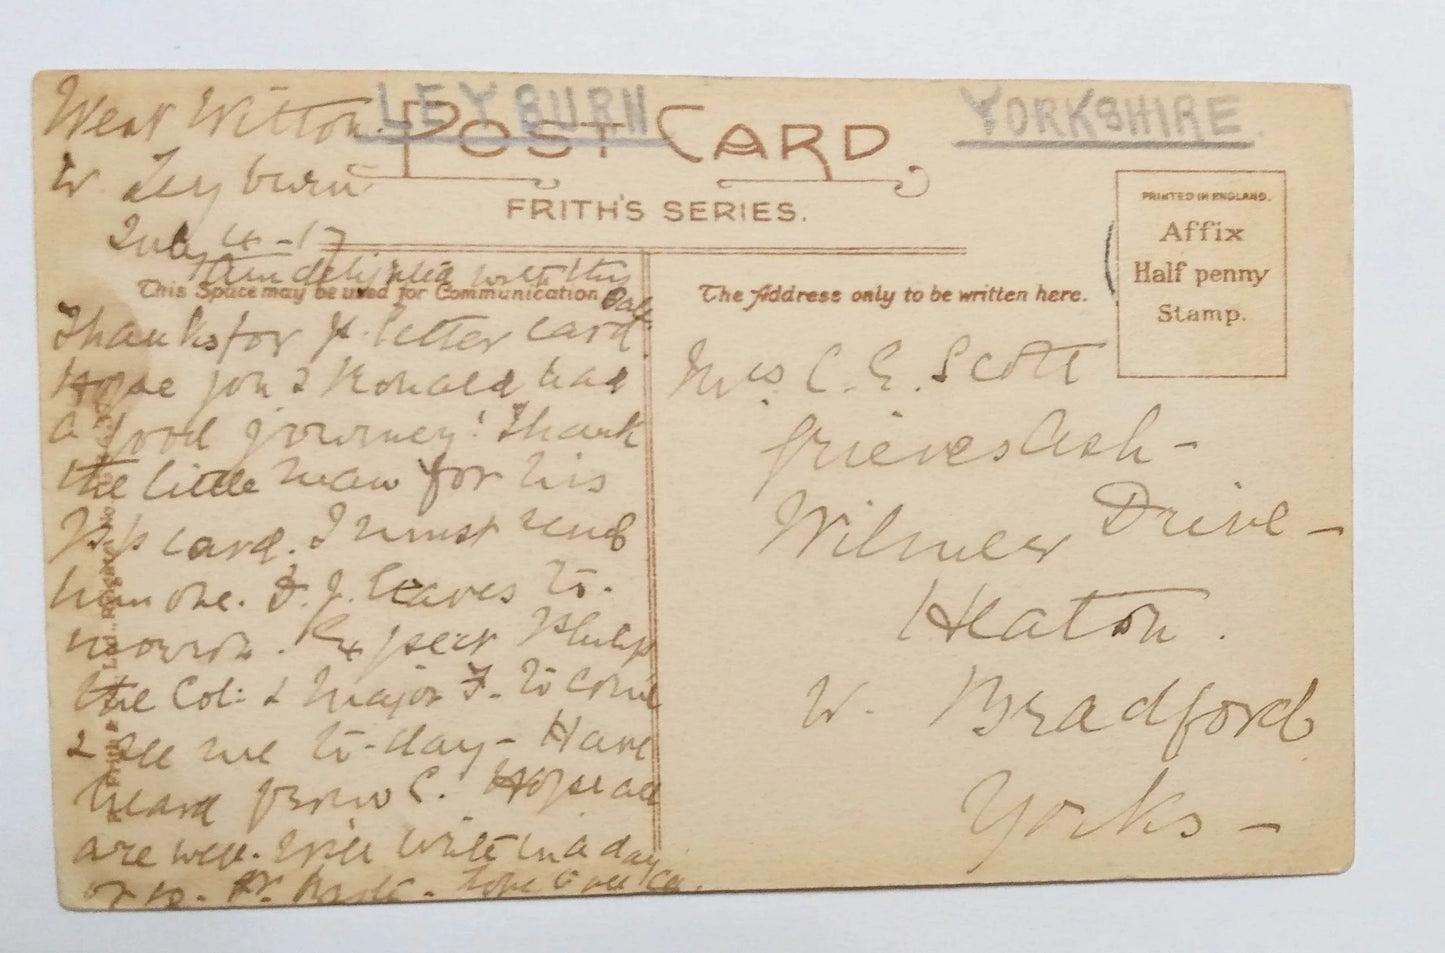 LEYBURN
YORKSHIRE.
POST CARD.
FRITH'S SERIES.
PRINTED IN ENGLAND.
Affix
Half penny
Stamp.
West Witton
Leyburn
July 4 - 17
Am delighted with this
Dale
This Space may be used for Communication
Thanks for letter card.
Hope you & Ronald had
a good journey! Thank
the little man for his
P/p card. I must send
him one. F. J. leaves to-
morrow. Expect Philip
the Col: & Major F. to come
& see me to-day - Have
heard from C. Hope all
are well. Will write in a day
or so. love to all
The Address only to be written here.
Mrs C. E. Scott
Grieves Ash -
Wilmer Drive -
Heaton.
W. Bradford
Yorks -